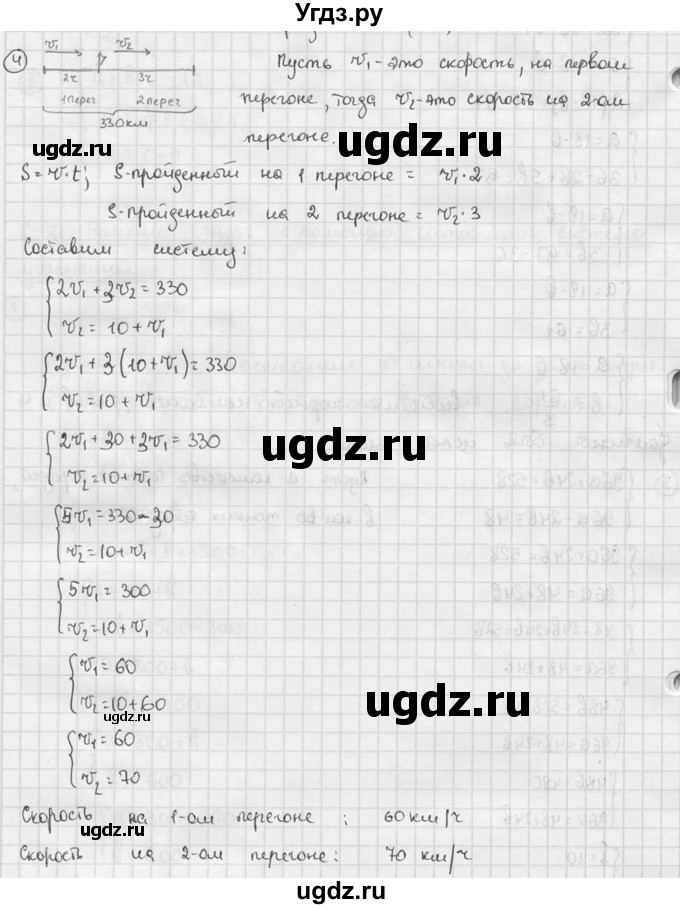 Угдз.ру
4 v₁ v₂
2ч 3ч
1 перег 2 перег
330 км
Пусть v₁ - это скорость, на первом
перегоне, тогда v₂ - это скорость на 2-ом
перегоне.
ugdz.ru ugdz.ru
S = v·t; S-пройденный на 1 перегоне = v₁·2
S-пройденный на 2 перегоне = v₂·3
Составим систему:
ugdz.ru
{2v₁ + 3v₂ = 330
v₂ = 10 + v₁
{2v₁ + 3(10 + v₁) = 330
v₂ = 10 + v₁
ugdz.ru ugdz.ru
{2v₁ + 30 + 3v₁ = 330
v₂ = 10 + v₁
{5v₁ = 330 - 30
v₂ = 10 + v₁
ugdz.ru
{5v₁ = 300
v₂ = 10 + v₁
ugdz.ru
{v₁ = 60
v₂ = 10 + 60
ugdz.ru ugdz.ru
{v₁ = 60
v₂ = 70
Скорость на 1-ом перегоне : 60 км/ч
ugdz.ru ugdz.ru
Скорость на 2-ом перегоне : 70 км/ч
ugdz.ru